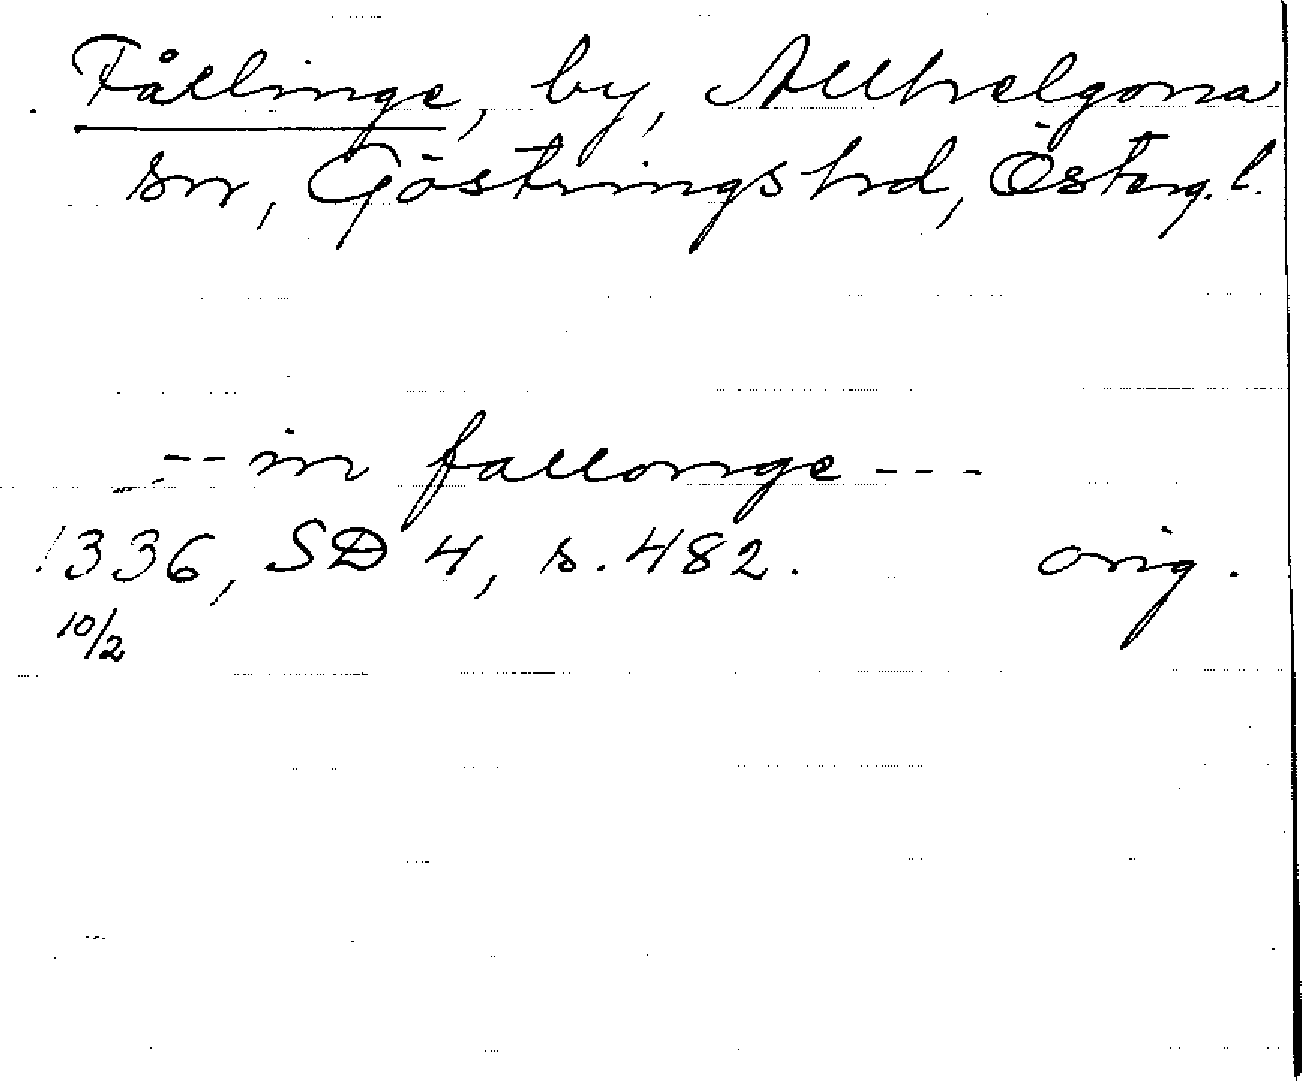 Fållinge, by, Allhelgona
sn, Göstrings hd, Österg. l.
-- in fallonge ---
1336, SD 4, s. 482. orig.
10/2